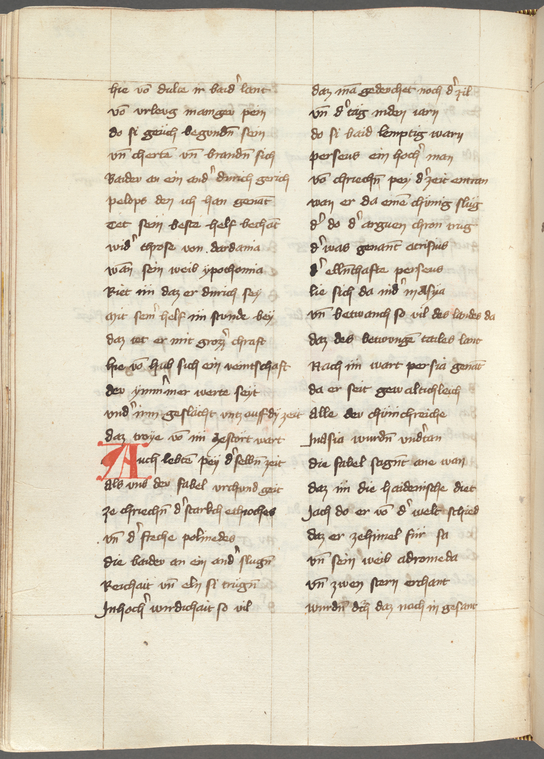 hie vō dulce ir baid' lant
vō vrleug maniger pein
do si gerich begundn̄ sein
vn̄ chertn̄ vn̄ brandn̄ sich
Baider an ein and' durich gerich
pelops den ich han genāt
Tet sein beste helf bechāt
wid' throse von dardania
wan sein weib ypochomia
Riet im daz er durich sey
Mit sein' helf im stunde bey
daz tet er mit groz̄z' chraft
hie vō hub sich ein veintschaft
der ymmmer werte seit
vnd' inn geslächt vntz auff dy zeit
daz troye vō im zestört wart
Auch lebtn̄ pey d' selbn̄ zeit
als vns der fabel vrchund geit
ze chriechn̄ d' starkch ethioches
vn̄ d' freche polinedes
die baider an ein and' slugn̄
Reichait vn̄ eln̄ si trugn̄
In hoch' wirdichait so vil
daz mā gedenchet noch d' zil
vn̄ d' tag inden iarn
do si baid lemptig warn
perseus ein hoch' man
vō chriechn̄ pey d' zeit entran
wan er da einē chünig slūg
d' do d' arguen chron trug
d' was genant acrisius
d' ellnthafte perseus
lie sich da nid' in Asya
vn̄ betwanch so vil des landes da
daz des betwunge tailes lant
Nach im wart persia genāt
da er seit gewaltichleich
alle der chünichreiche
In asia wurdn̄ vndtan
die fabel sagnt ane wan
daz im die haidenische diet
Jach do er vō d' welt schied
daz er ze himel für sa
vn̄ sein weib adromeda
vn̄ zwen stern erchant
wurdn̄ dch daz nach in gesant